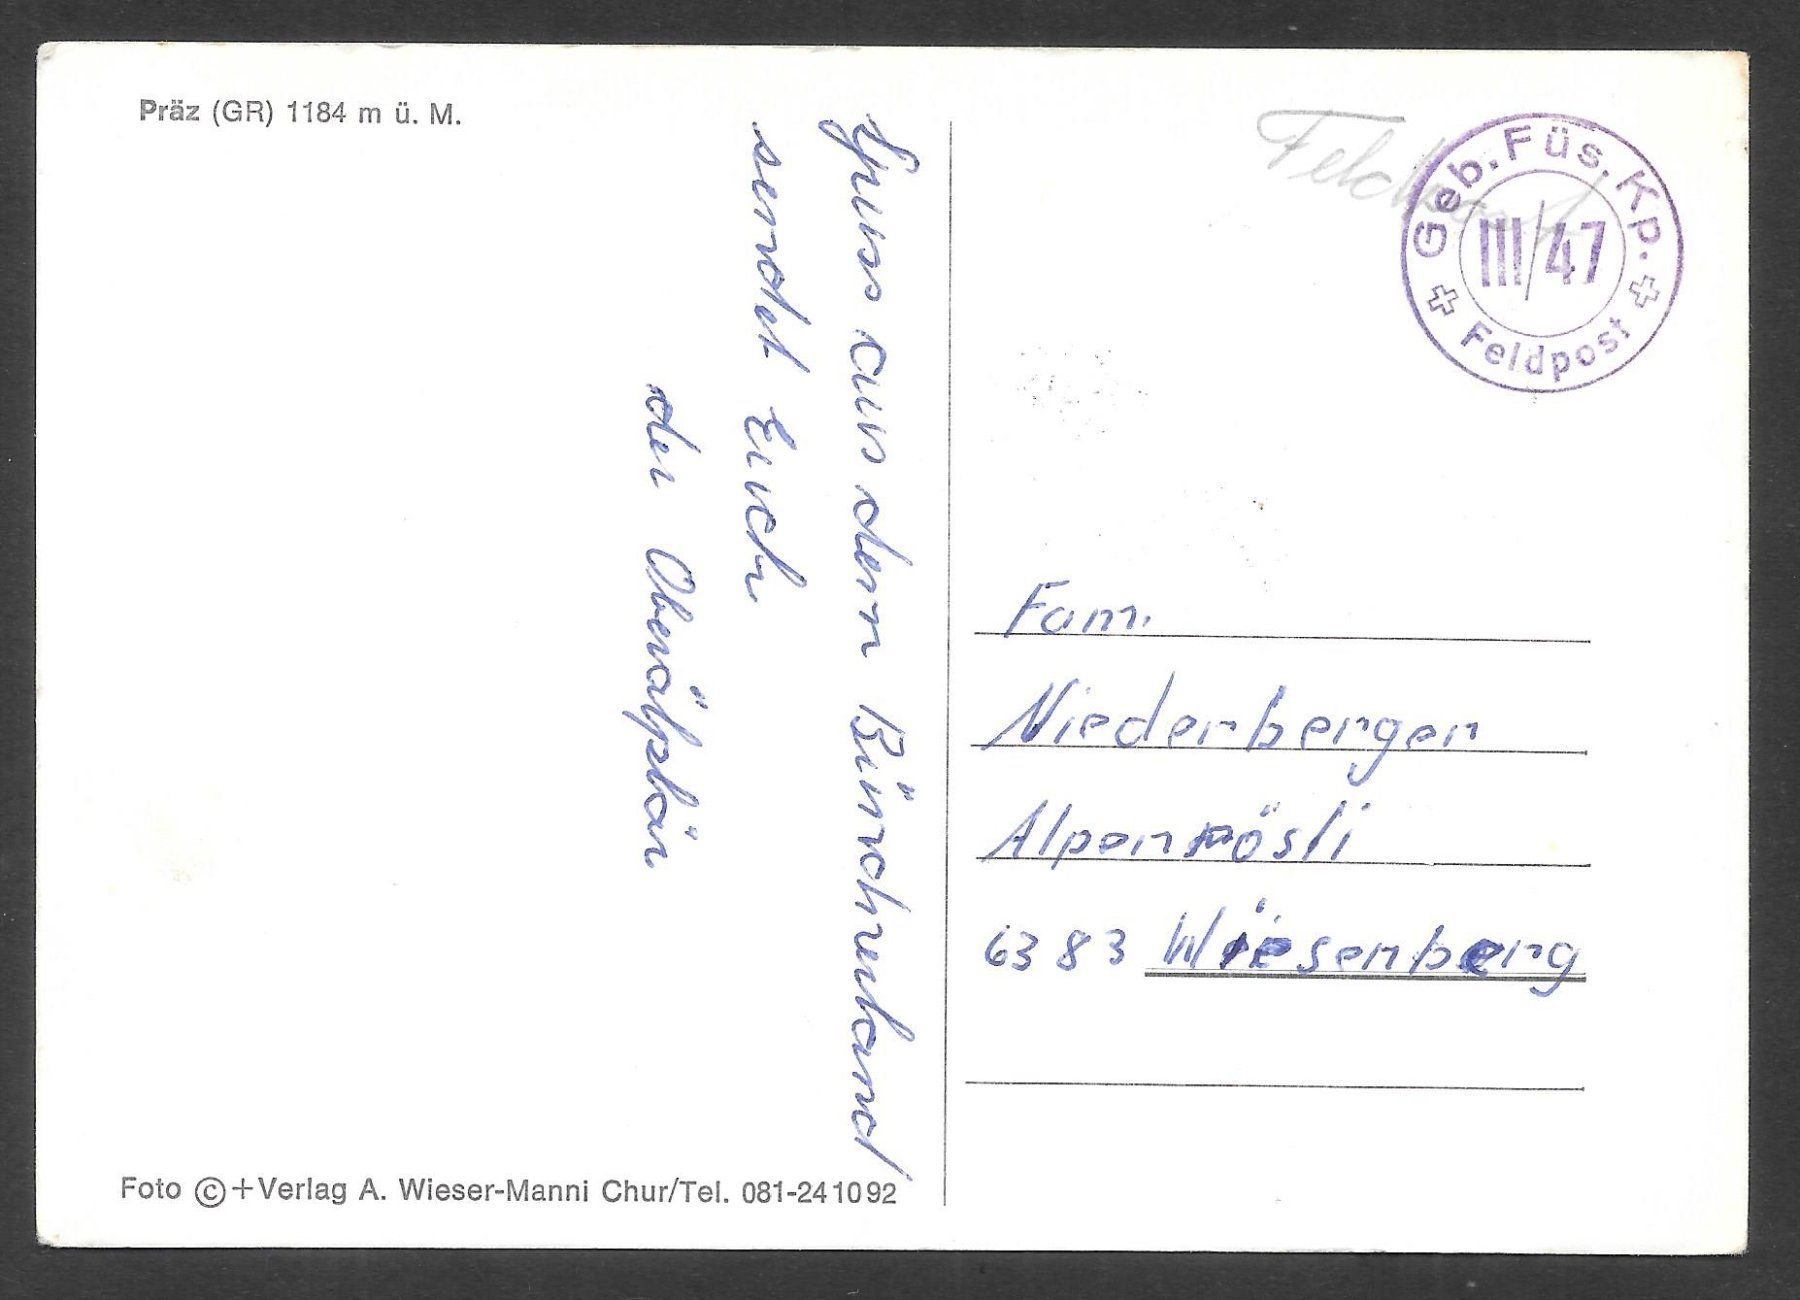 Präz (GR) 1184 m ü. M.
Gruss aus dem Bündnerland
sendet Euch
der Oberälpler
Foto ©+Verlag A. Wieser-Manni Chur/Tel. 081-241092
Feldpost
Geb. Füs. Kp.
III/47
Feldpost
Fam.
Niederberger
Alpenrösli
6383 Wiesenberg